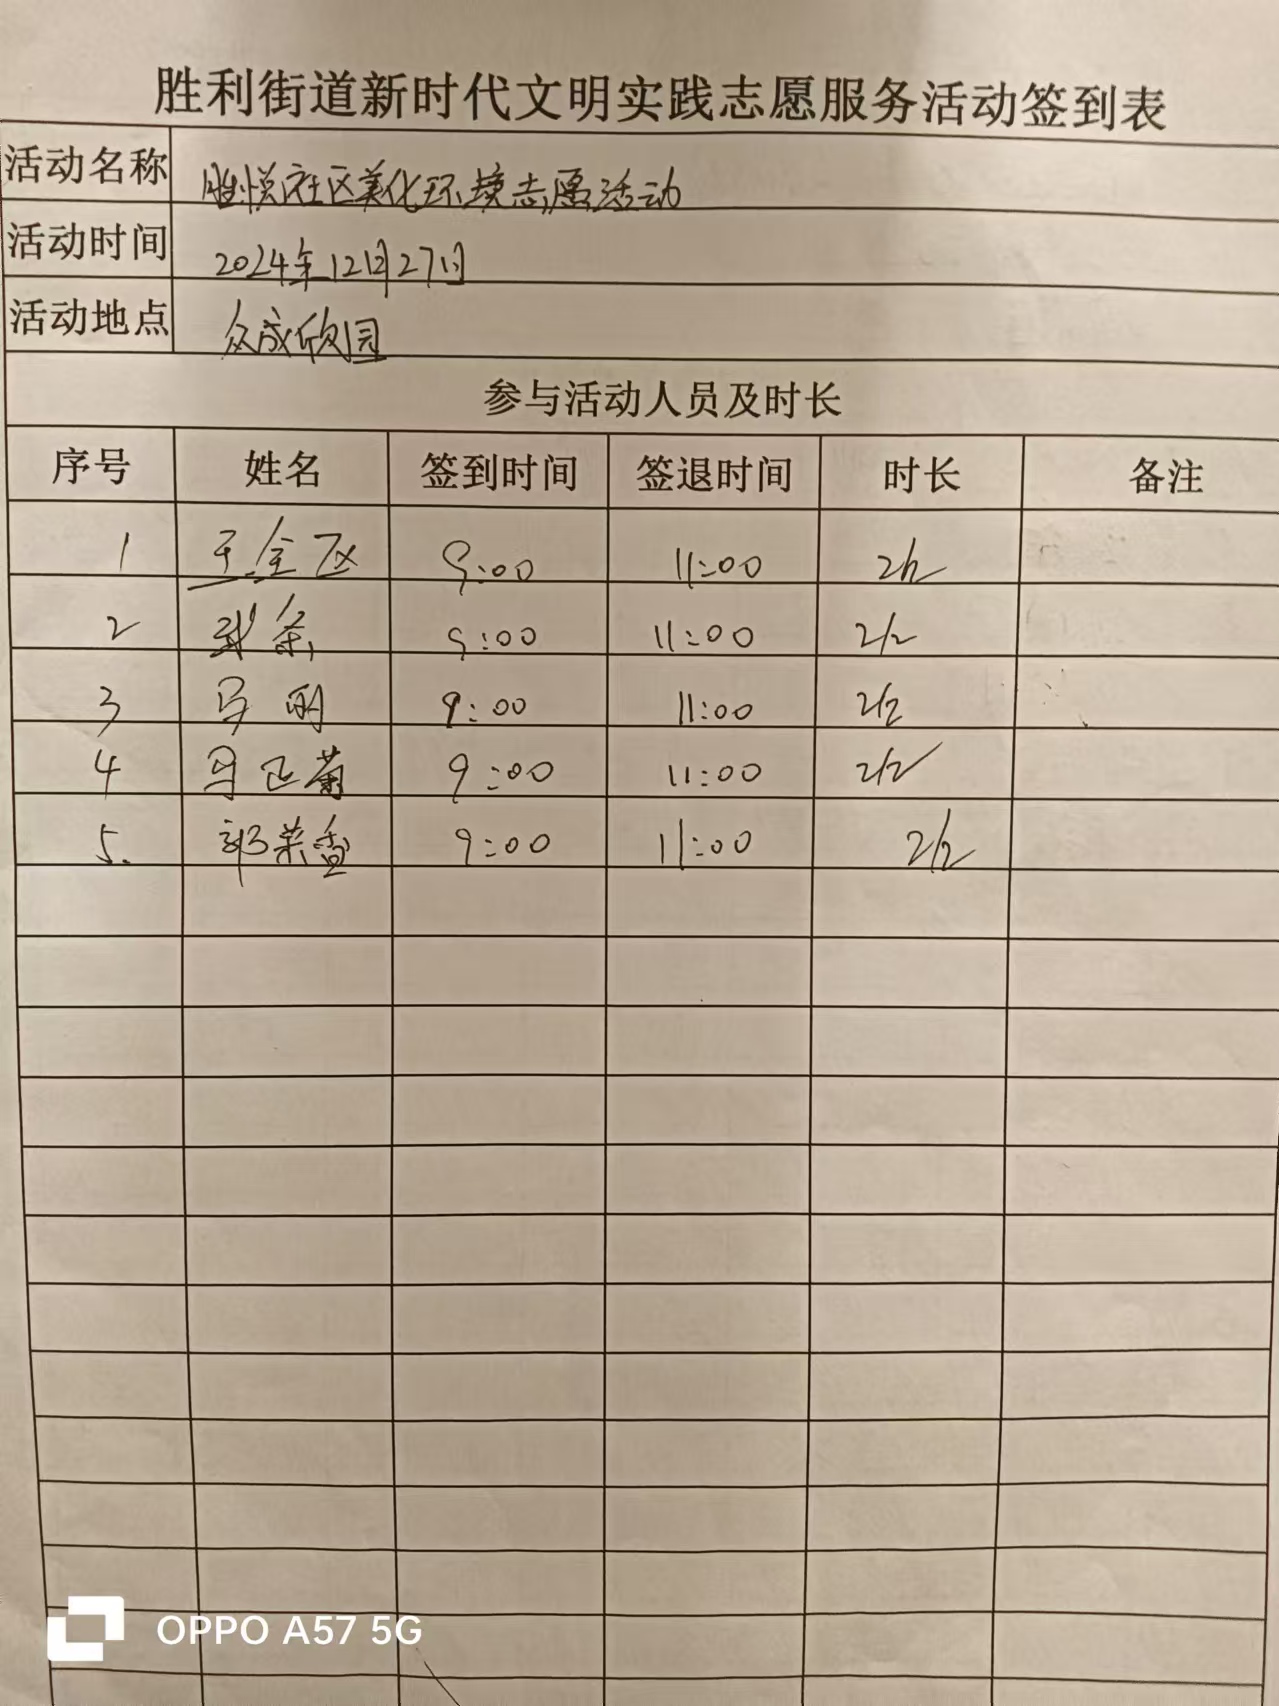 胜利街道新时代文明实践志愿服务活动签到表
活动名称 胜悦社区美化环境志愿活动
活动时间 2024年12月27日
活动地点 众成欣园
参与活动人员及时长
序号 姓名 签到时间 签退时间 时长 备注
1 王全区 9:00 11:00 2h
2 9:00 11:00 2h
3 马明 9:00 11:00 2h
4 马正菊 9:00 11:00 2h
5. 郭荣香 9:00 11:00 2h
OPPO A57 5G